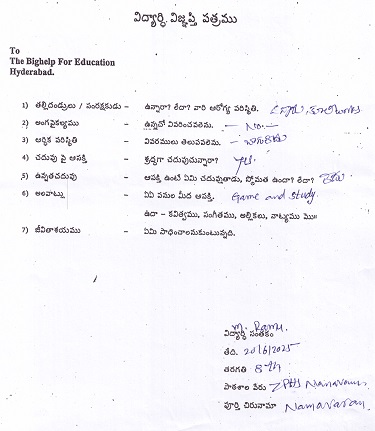 విద్యార్థి విజ్ఞప్తి పత్రము
To
The Bighelp For Education
Hyderabad.
1) తల్లిదండ్రులు / సంరక్షకుడు - ఉన్నారా? లేదా? వారి ఆరోగ్య పరిస్థితి.
2) అంగవైకల్యము - ఉన్నచో వివరించవలెను. - No. -
3) ఆర్థిక పరిస్థితి - వివరములు తెలుపవలెను. -
4) చదువు పై ఆసక్తి - శ్రద్ధగా చదువుచున్నారా? yes.
5) ఉన్నతచదువు - ఆసక్తి ఉంటే ఏమి చదువుతాడు, స్తోమత ఉందా? లేదా?
6) అలవాట్లు - ఏఏ పనుల మీద ఆసక్తి. Game and study.
ఉదా - కవిత్వము, సంగీతము, అల్లికలు, నాట్యము మొ॥
7) జీవితాశయము - ఏమి సాధించాలనుకుంటున్నది.
M. Ramu.
విద్యార్థి సంతకం
తేది. 20/6/2025
తరగతి 8th
పాఠశాల పేరు ZPHS
పూర్తి చిరునామా